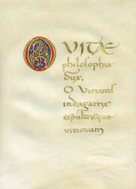 O VITAE
philosophia
dux,
O Virtutis
indagatrix
expultrixque
vitiorum